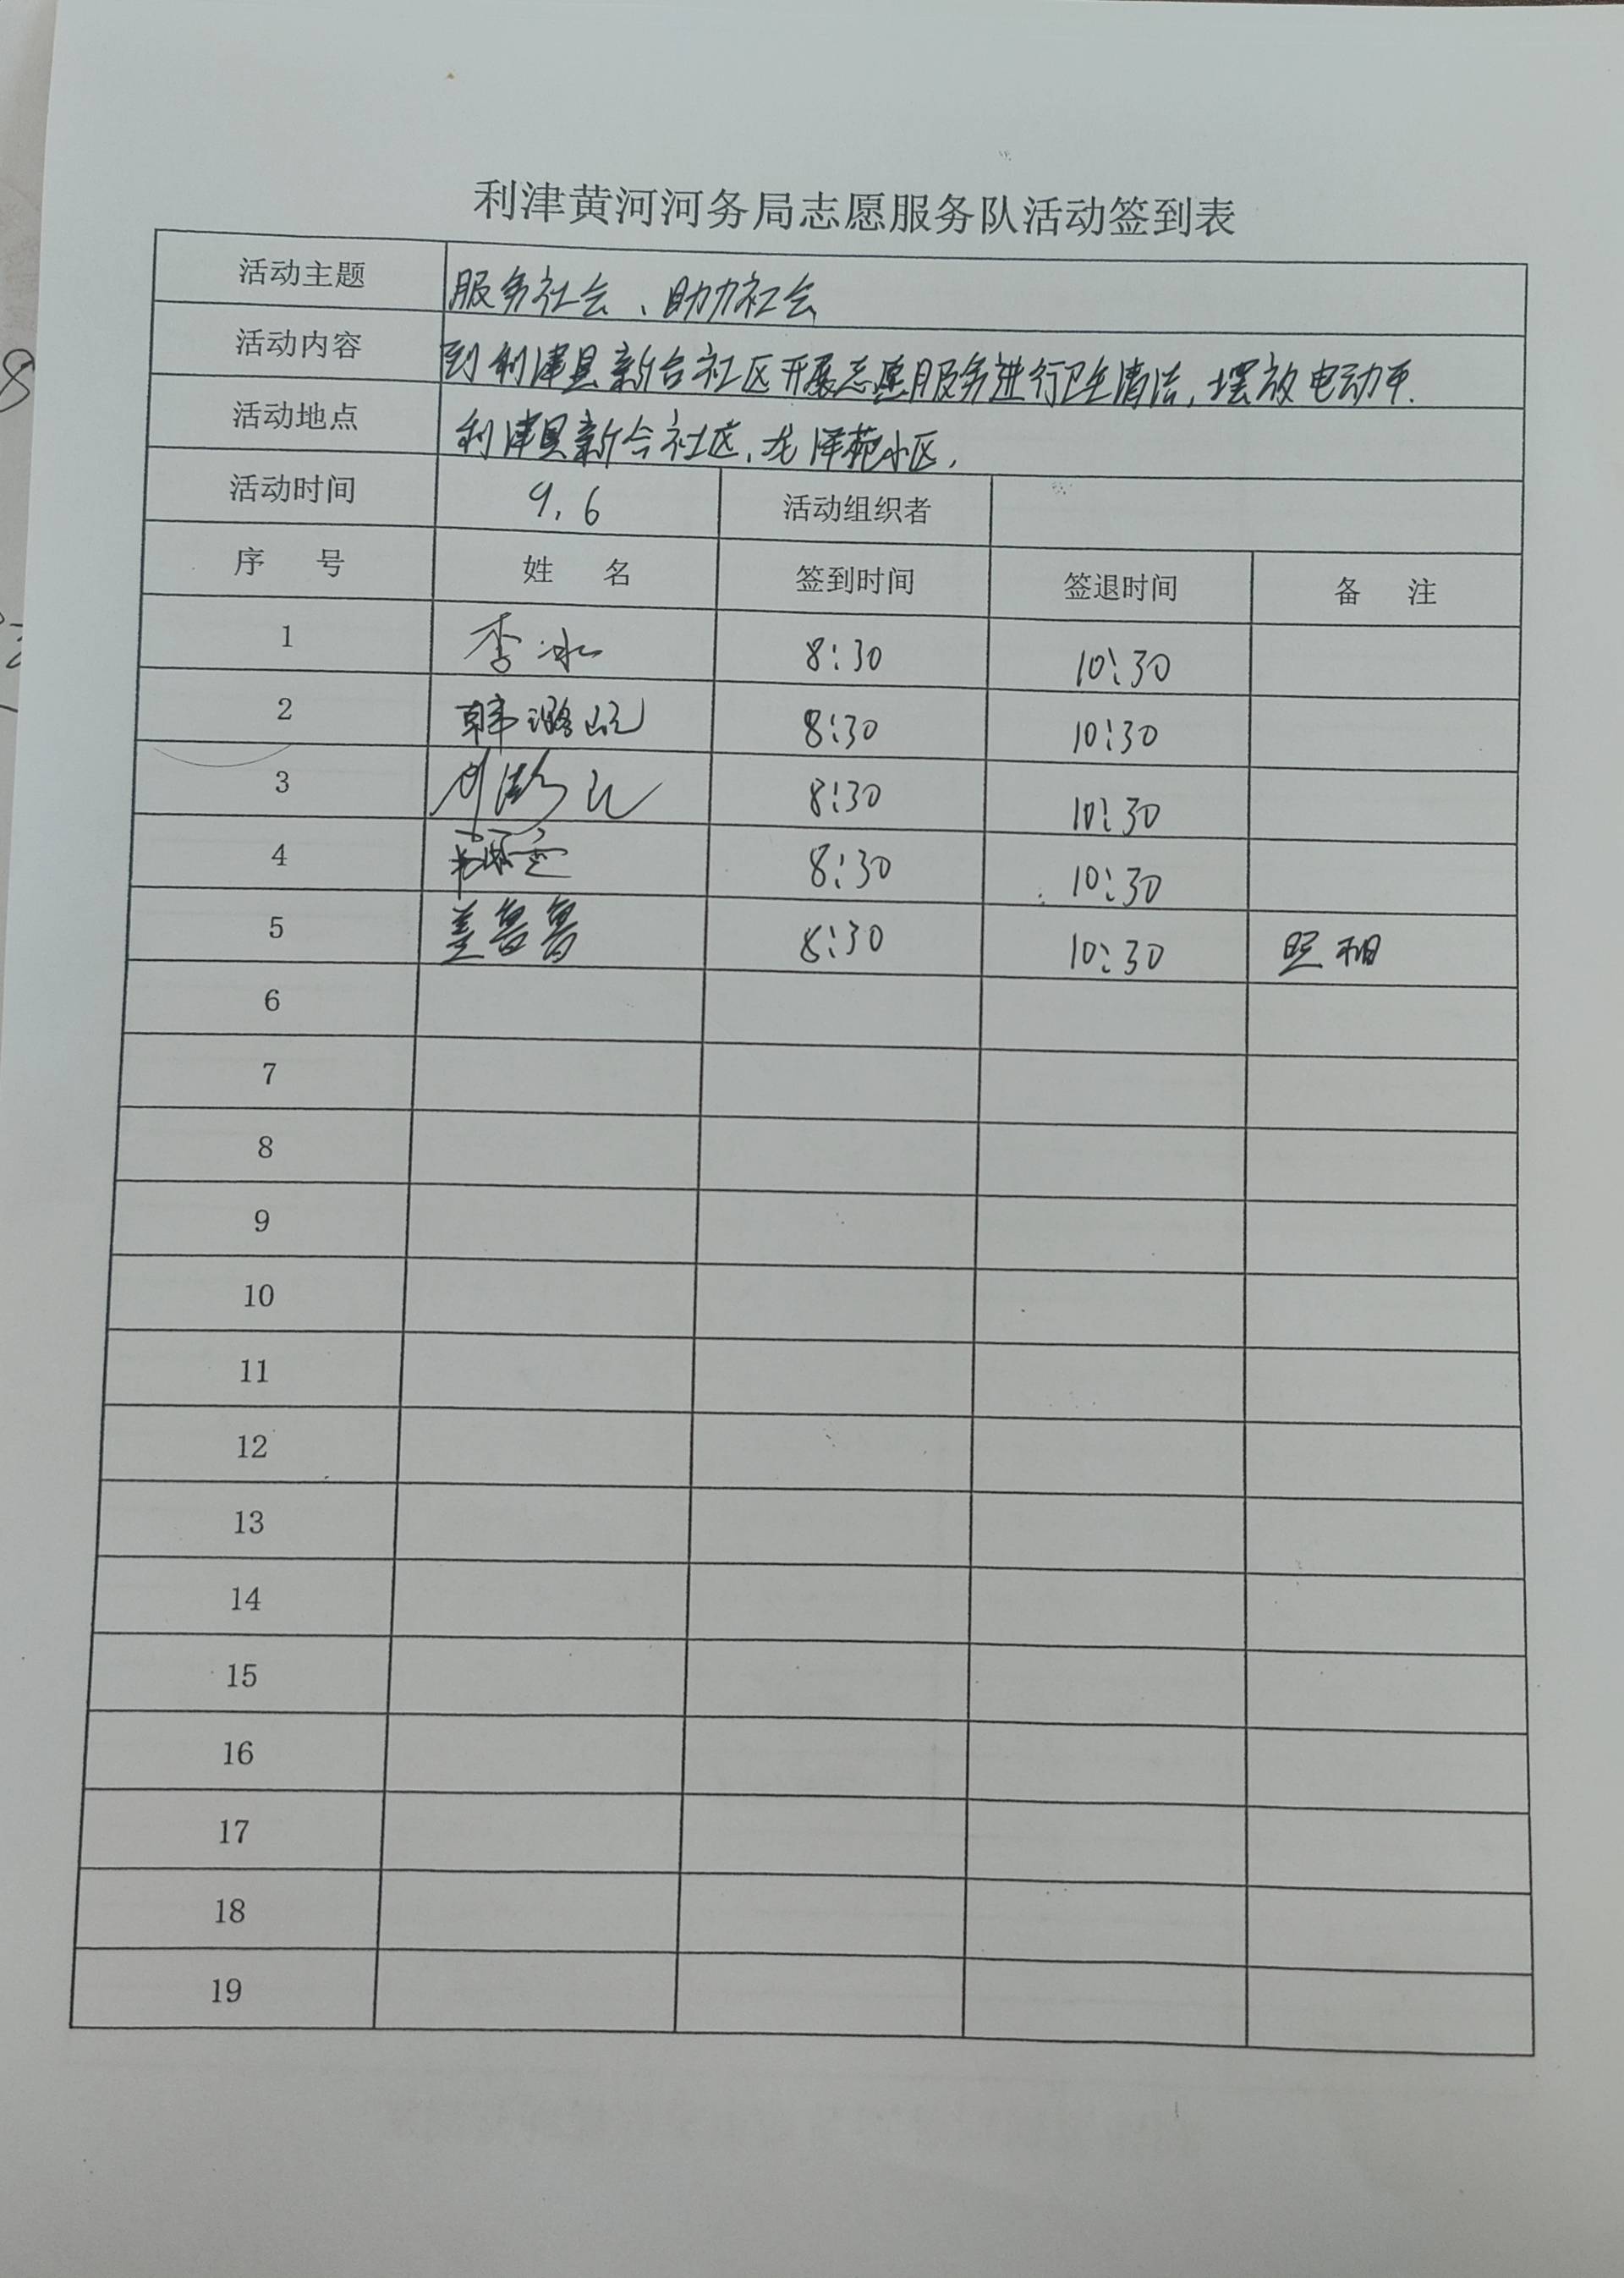 利津黄河河务局志愿服务队活动签到表
活动主题 服务社会、助力社会
活动内容 到利津县新合社区开展志愿服务进行卫生清洁,摆放电动车.
活动地点 利津县新合社区,龙泽苑小区,
活动时间 9.6 活动组织者
序 号 姓 名 签到时间 签退时间 备 注
1 李冰 8:30 10:30
2 韩璐 8:30 10:30
3 8:30 10:30
4 8:30 10:30
5 盖鲁鲁 8:30 10:30 照相
6
7
8
9
10
11
12
13
14
15
16
17
18
19